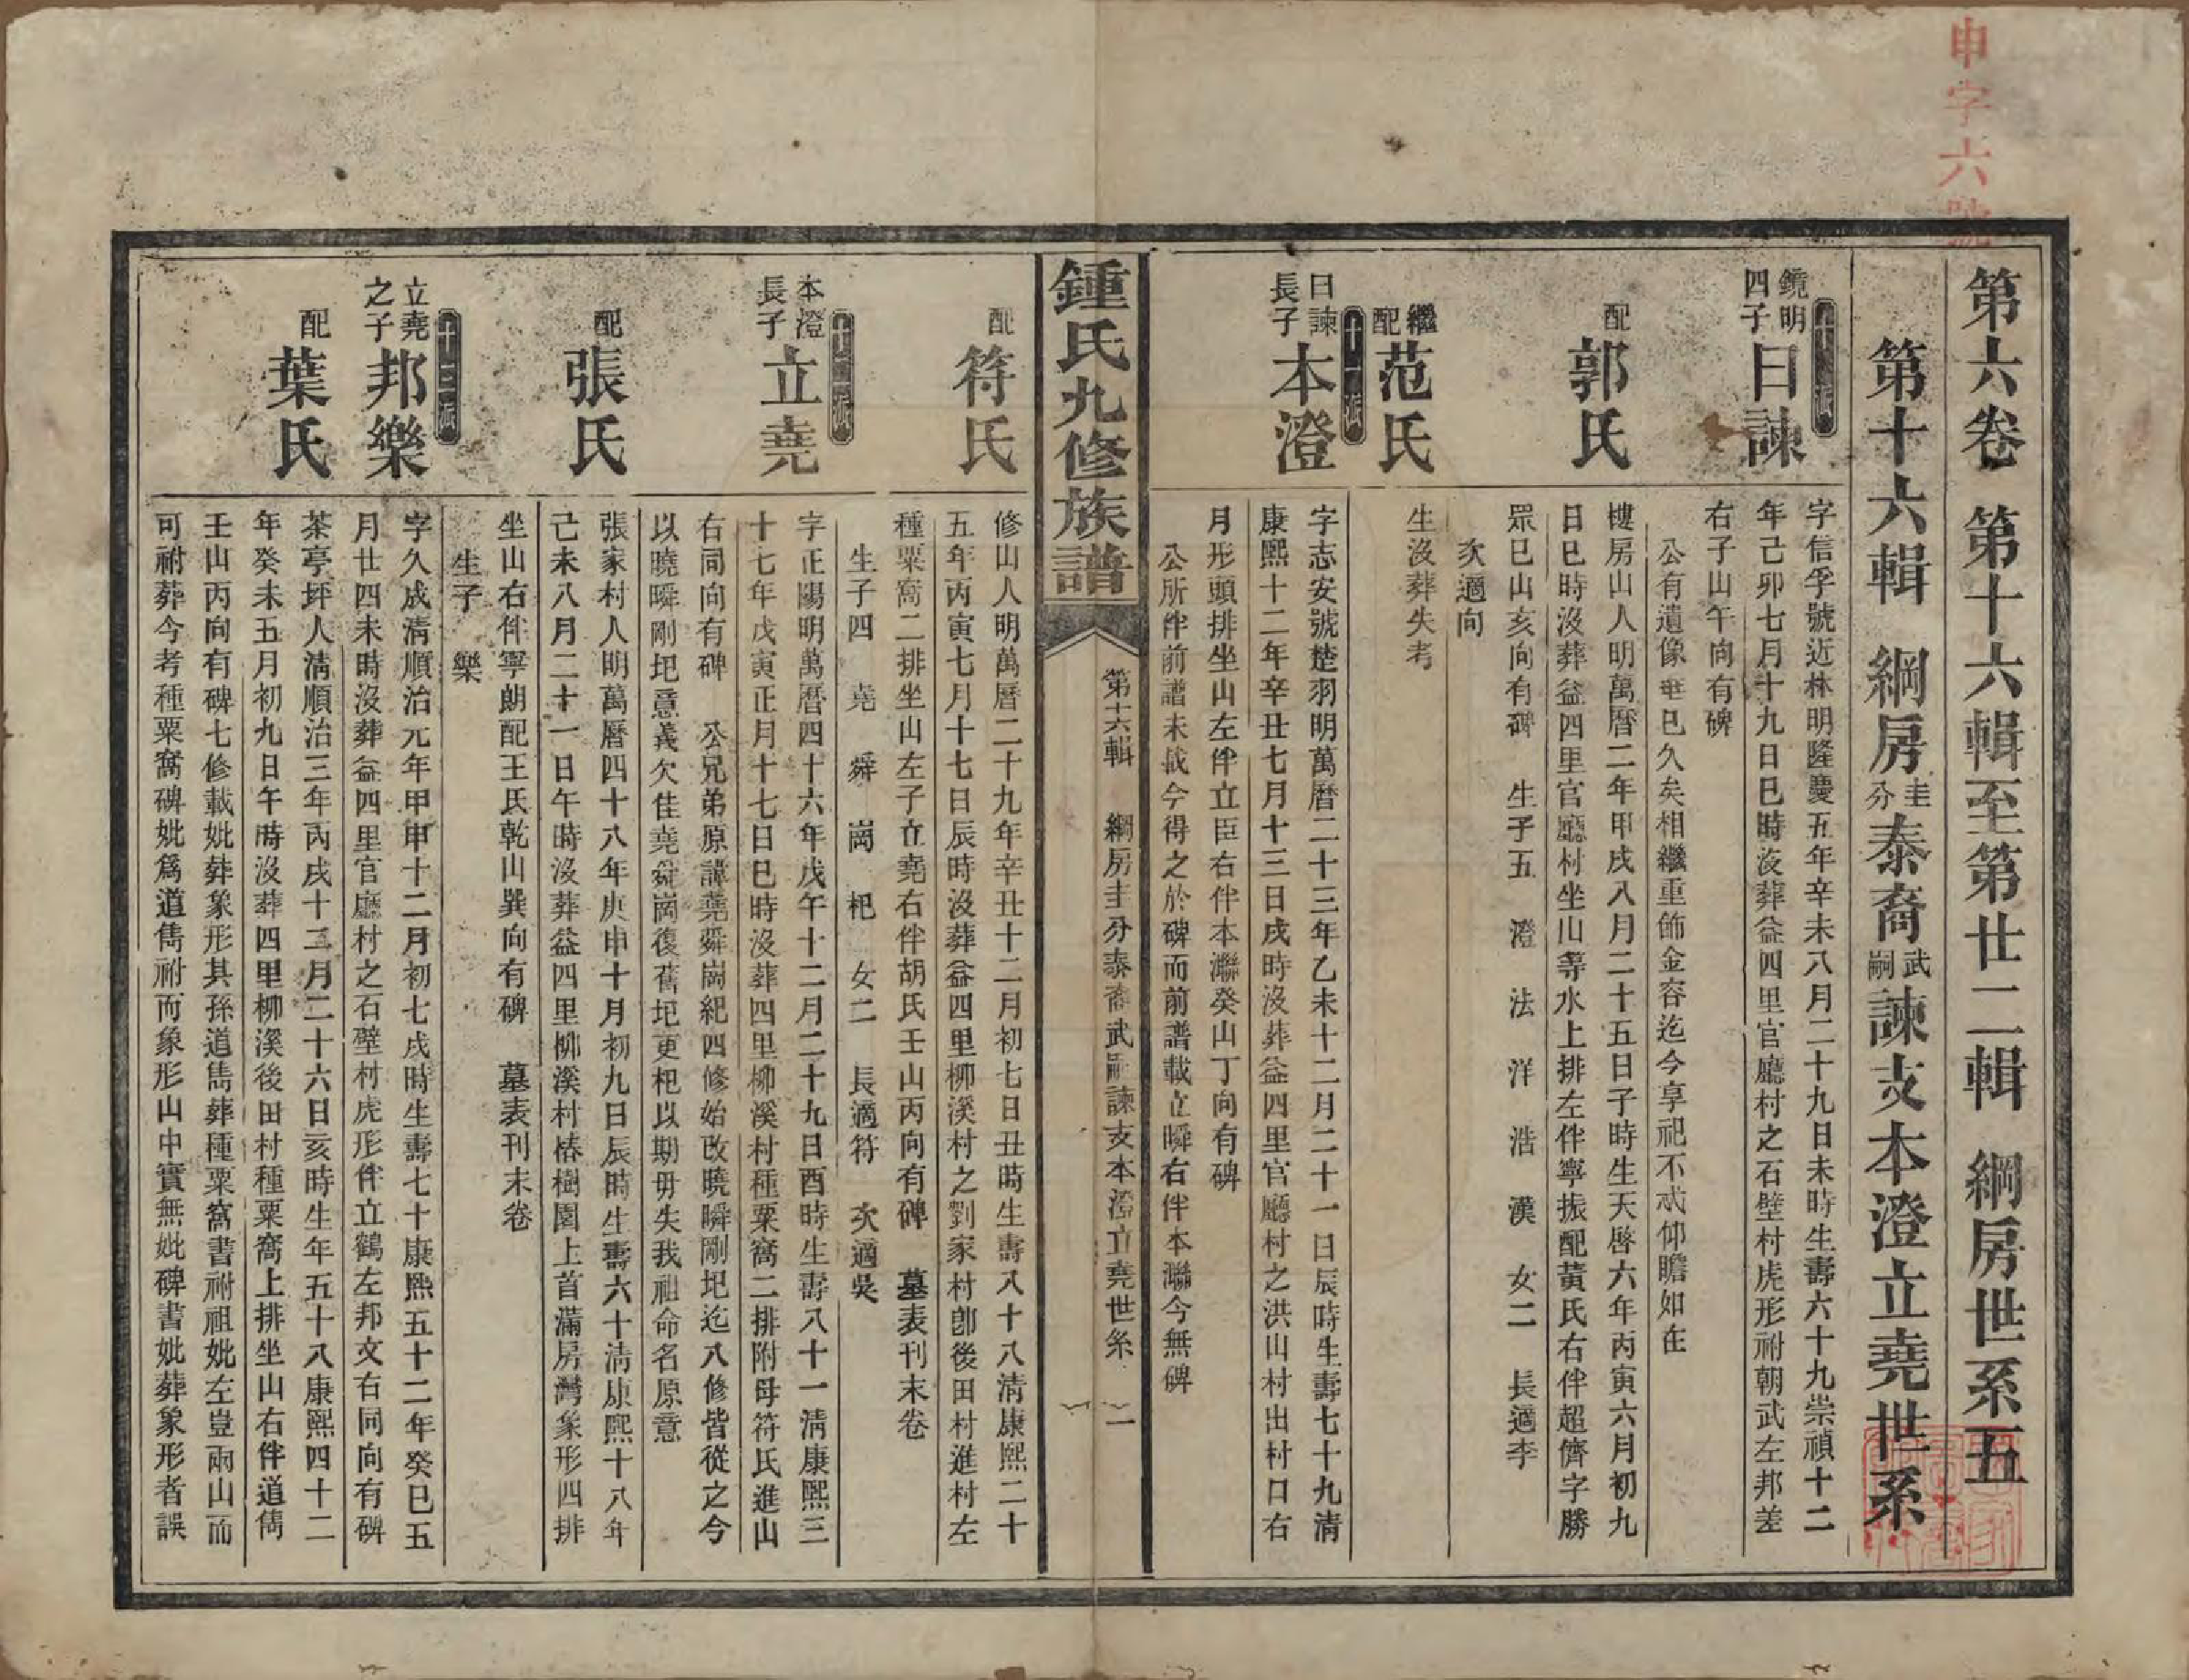 申字六號
第六卷　第十六輯至第廿二輯　綱房世系五
第十六輯　綱房圭分泰裔武嗣諫支本澄立堯世系
鏡明四子
日諫
字信孚號近林明隆慶五年辛未八月二十九日未時生壽六十九崇禎十二
年己卯七月十九日巳時沒葬益四里官廳村之石壁村虎形祔朝武左邦差
右子山午向有碑
公有遺像龕已久矣相繼重飾金容迄今享祀不忒仰瞻如在
配
郭氏
樓房山人明萬曆二年甲戌八月二十五日子時生天啓六年丙寅六月初九
日巳時沒葬益四里官廳村坐山等水上排左伴寧振配黃氏右伴超儕字勝
眾巳山亥向有碑　生子五　澄　法　洋　浩　漢　女二　長適李
次適向
繼配
范氏
生沒葬失考
十一派
日諫長子
本澄
字志安號楚羽明萬曆二十三年乙未十二月二十一日辰時生壽七十九清
康熙十二年辛丑七月十三日戌時沒葬益四里官廳村之洪山村出村口右
月形頭排坐山左伴立臣右伴本灝癸山丁向有碑
公所伴前譜未載今得之於碑而前譜載立瞬右伴本灝今無碑
鍾氏九修族譜
第十六輯　綱房圭分泰裔武嗣諫支本澄立堯世系　一
配
符氏
修山人明萬曆二十九年辛丑十二月初七日丑時生壽八十八清康熙二十
五年丙寅七月十七日辰時沒葬益四里柳溪村之劉家村卽後田村進村左
種粟窩二排坐山左子立堯右伴胡氏壬山丙向有碑　墓表刊末卷
生子四　堯　舜　崗　杞　女二　長適符　次適吳
本澄長子
立堯
字正陽明萬曆四十六年戊午十二月二十九日酉時生壽八十一清康熙三
十七年戊寅正月十七日巳時沒葬四里柳溪村種粟窩二排附母符氏進山
右同向有碑　公兄弟原諱堯舜崗紀四修始改曉瞬剛圯迄八修皆從之今
以曉瞬剛圯意義欠佳堯舜崗復舊圯更杞以期毋失我祖命名原意
配
張氏
張家村人明萬曆四十八年庚申十月初九日辰時生壽六十清康熙十八年
己未八月二十一日午時沒葬益四里柳溪村樁樹園上首滿房灣象形四排
坐山右伴寧朗配王氏乾山巽向有碑　墓表刊末卷
生子　樂
立堯之子
邦樂
字久成清順治元年甲申十二月初七戌時生壽七十康熙五十二年癸巳五
月廿四未時沒葬益四里官廳村之石壁村虎形伴立鶴左邦文右同向有碑
配
葉氏
茶亭坪人清順治三年丙戌十二月二十六日亥時生年五十八康熙四十二
年癸未五月初九日午時沒葬四里柳溪後田村種粟窩上排坐山右伴道儁
壬山丙向有碑七修載妣葬象形其孫道儁葬種粟窩書祔祖妣左豈兩山而
可祔葬今考種粟窩碑妣爲道儁祔而象形山中實無妣碑書妣葬象形者誤